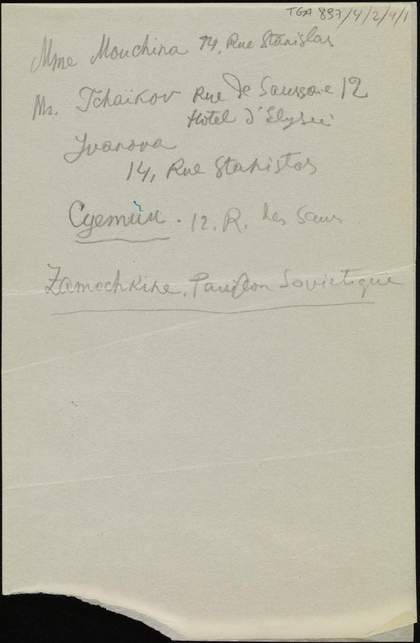 TGA 897/4/2/4/1
Mme Mouchina 14, Rue Stanislas
Mr. Tchaikov Rue de Saussaie 12
Hotel d'Elyseé
Yvanova
14, Rue Stanislas
Суетин. 12. R. des Saus
Zamochkine. Pavillon Sovietique